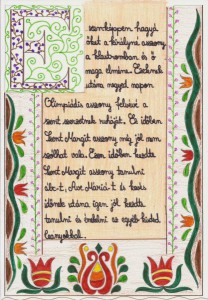 Ezenképpen hagyá
őket a királyné asszony
a klastromban és ő
maga elméne. Ezeknek
utána negyed napon
Olimpiádis asszony felvevé a
szent szerzetnek ruháját. Ez időben
Szent Margit asszony még jól nem
szólhat vala. Ezen időben kezdte
Szent Margit asszony tanulni
ábc-t, Ave Máriá-t és kevés
időnek utána igen jól kezdte
tanulni és énekelni az egyéb kisded
leányokkal.